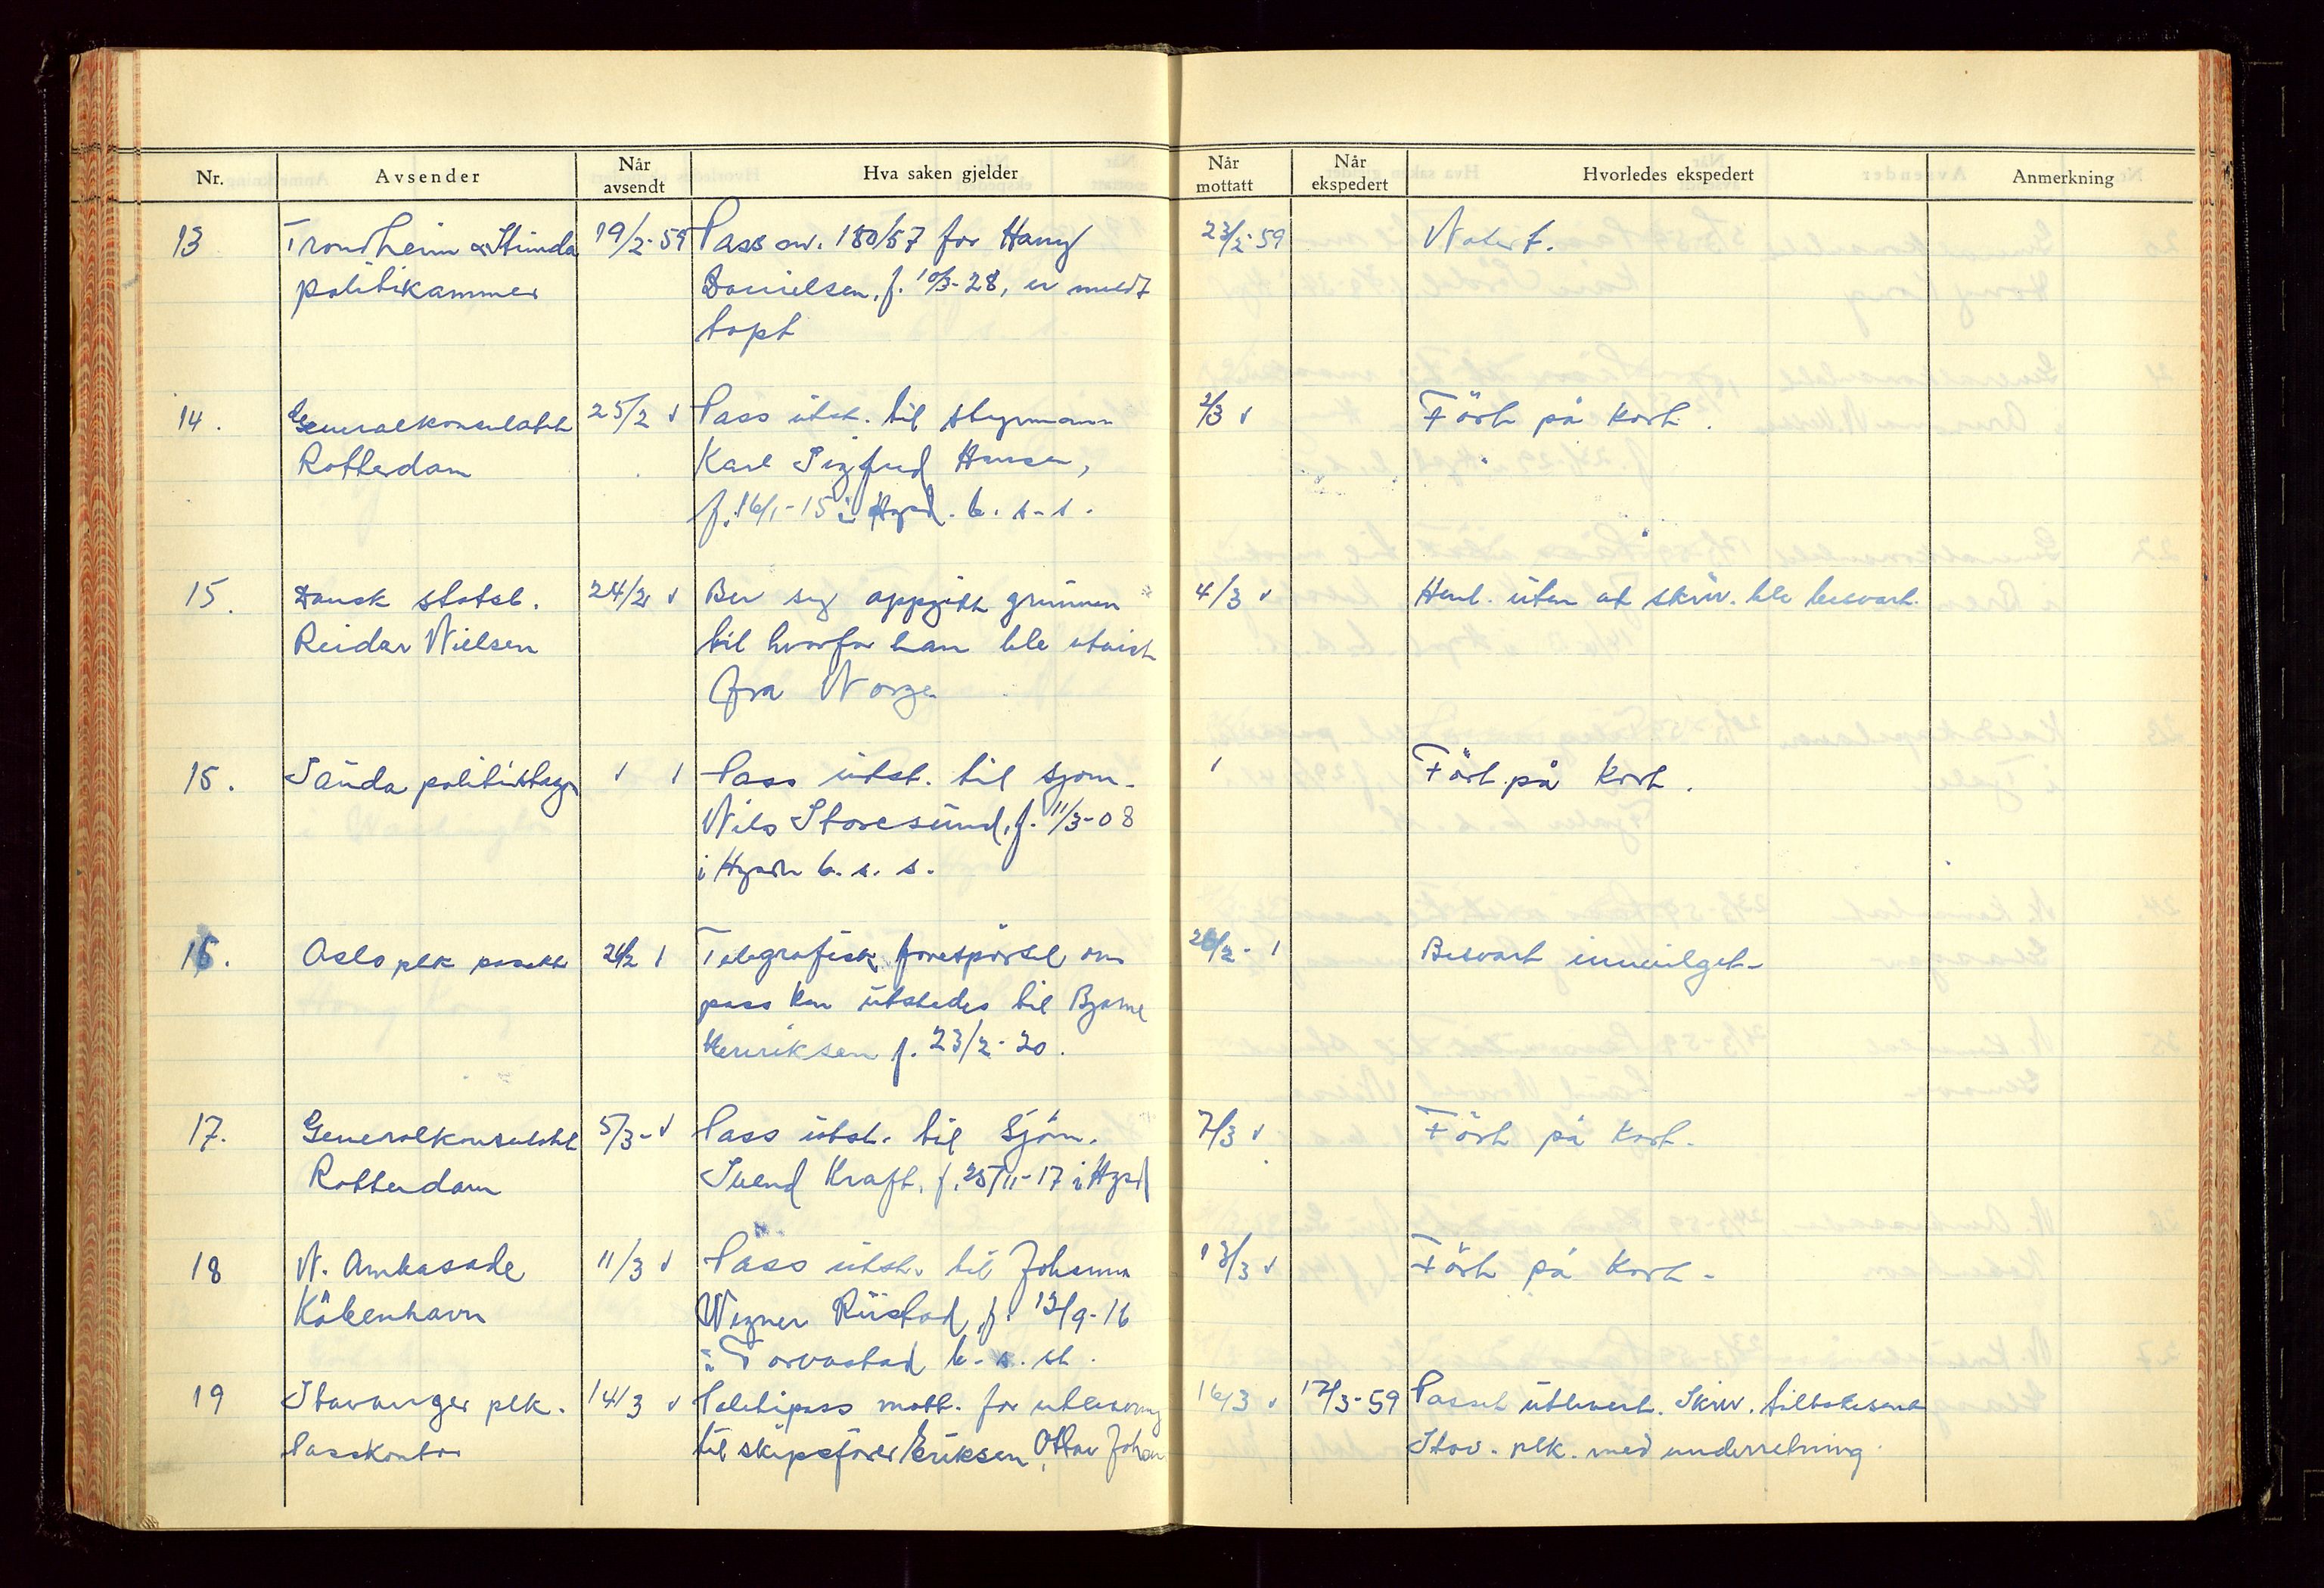 Nr. Avsender Når avsendt Hva saken gjelder Når mottatt Når ekspedert Hvorledes ekspedert Anmerkning
13 Trondheim & Strinda 19/2-59 Pass nr. 180/57 for Harry 23/2-59 Notert.
politikammer Danielsen, f. 10/3-28, er meldt
tapt
14. Generalkonsulatet 25/2 Pass utst. til styrmann 2/3 Ført på kort.
Rotterdam Karl Sigfred Hansen,
f. 16/1-15 i Hgsd. b. s. s.
15. Dansk statsb. 24/2 Ber seg oppgitt grunnen 4/3 Henl. uten at skriv. ble besvart.
Reidar Nielsen til hvorfor han ble utvist
fra Norge
15. Sauda politi Pass utst. til sjøm. Ført på kort.
Nils Storesund, f. 11/3-08
i Hgsd. b. s. s.
16. Oslo plk 26/2 Telegrafisk forespørsel om 26/2- Besvart innvilget-
pass kan utstedes til Bjarne
Henriksen f. 23/2-20.
17. Generalkonsulatet 5/3- Pass utst. til sjøm. 7/3 Ført på kort.
Rotterdam Svend Kraft, f. 25/11-17 i Hgsd
18 N. Ambasade 11/3 Pass utst. til Johanna 13/3 Ført på kort-
København Wegner Riistad, f. 13/9-16
i Torvastad b. s. st.
19 Stavanger plk. 14/3 mott. for utlevering 16/3 17/3-59 Passet utlevert. Skriv. tilbakesendt
Passkontor til skipsfører Eriksen, Ottar Johan Stav. plk. med underretning.